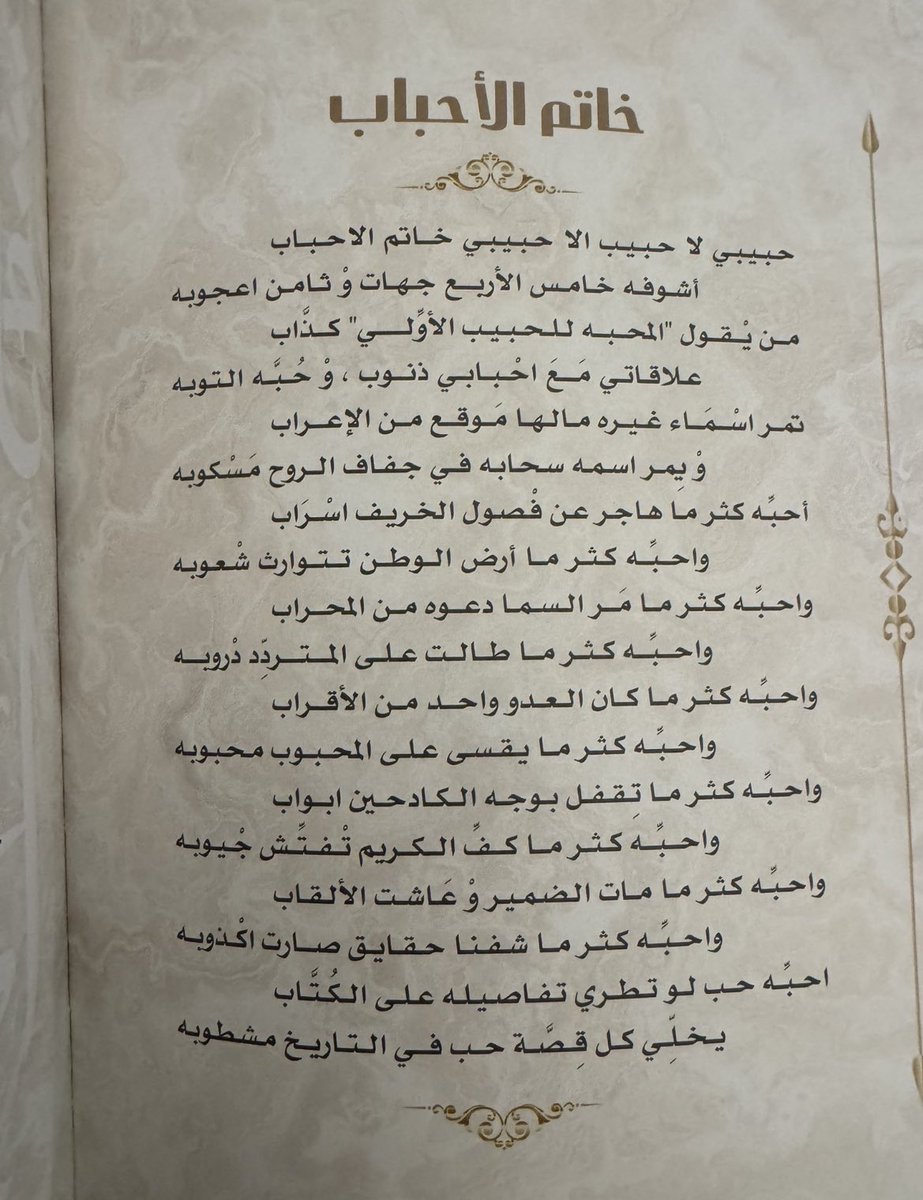 خاتم الأحباب
حبيبي لا حبيب الا حبيبي خاتم الاحباب
أشوفه خامس الأربع جهات وْ ثامن اعجوبه
من يْقول "المحبه للحبيب الأوَّلي" كذَّاب
علاقاتي مَعَ احْبابي ذنوب ، وْ حُبَّه التوبه
تمر اسْمَاء غيره مالها مَوقع من الإعراب
وْ يِمر اسمه سحابه في جفاف الروح مَسْكوبه
أحبِّه كثر ما هاجر عن فْصول الخريف اسْرَاب
واحبِّه كثر ما أرض الوطن تتوارث شْعوبه
واحبِّه كثر ما مَر السما دعوه من المحراب
واحبِّه كثر ما طالت على المتردِّد دْروبه
واحبِّه كثر ما كان العدو واحد من الأقراب
واحبِّه كثر ما يقسى على المحبوب محبوبه
واحبِّه كثر ما تِقفل بوجه الكادحين ابواب
واحبِّه كثر ما كفِّ الكريم تْفتِّش جْيوبه
واحبِّه كثر ما مات الضمير وْ عَاشت الألقاب
واحبِّه كثر ما شفنا حقايق صارت اكْذوبه
احبِّه حب لو تطري تفاصيله على الكُتَّاب
يخلِّي كل قِصَّة حب في التاريخ مشطوبه